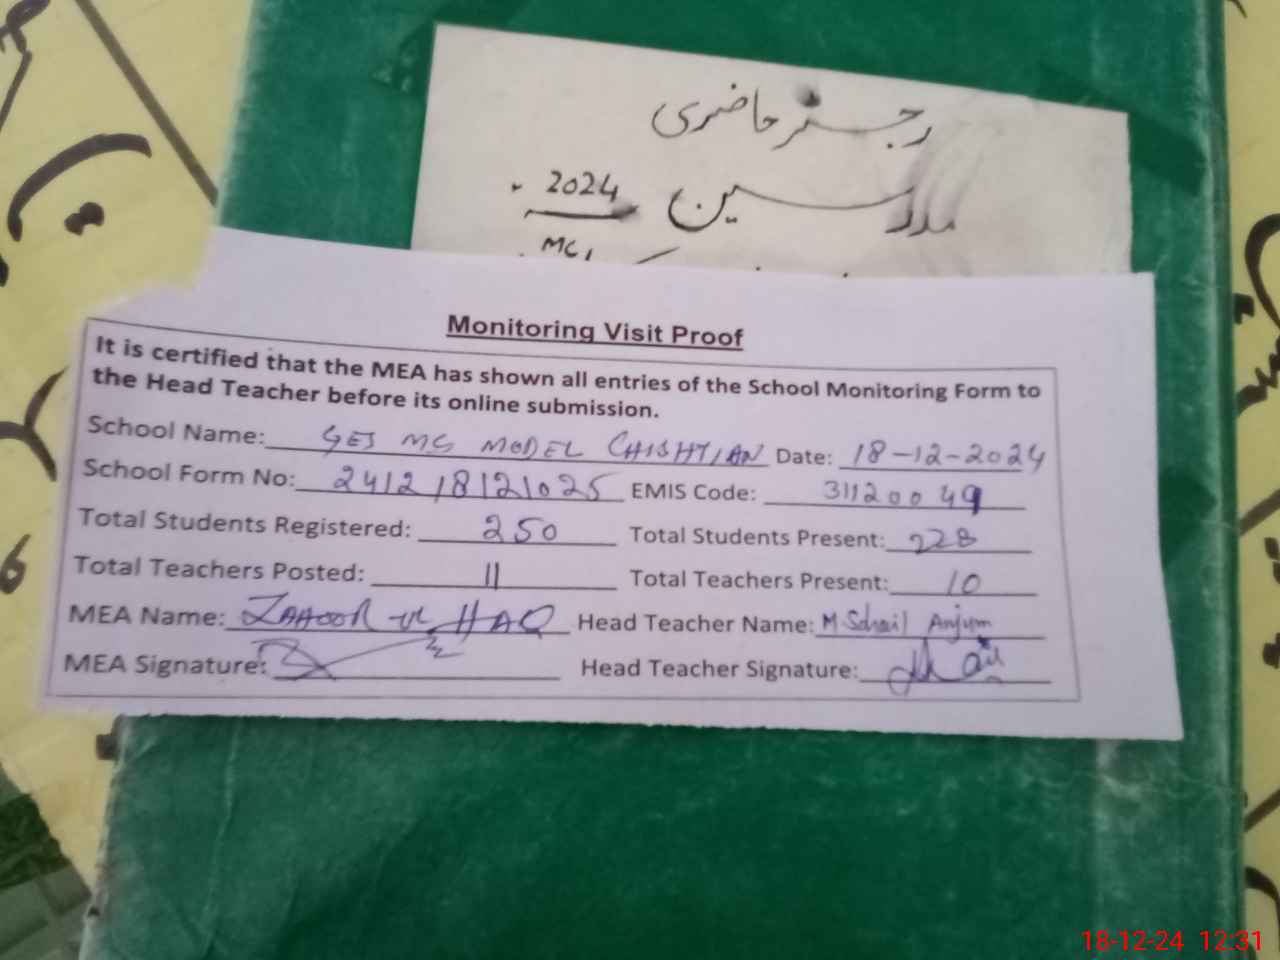 رجسٹر حاضری
ملازمین 2024
MC
Monitoring Visit Proof
It is certified that the MEA has shown all entries of the School Monitoring Form to
the Head Teacher before its online submission.
School Name: GES MC MODEL CHISHTIAN Date: 18-12-2024
School Form No: 241218121025 EMIS Code: 31120049
Total Students Registered: 250 Total Students Present: 228
Total Teachers Posted: 11 Total Teachers Present: 10
MEA Name: ZAHOOR UL HAQ Head Teacher Name: M Sohail Anjum
MEA Signature: Head Teacher Signature:
18-12-24 12:31